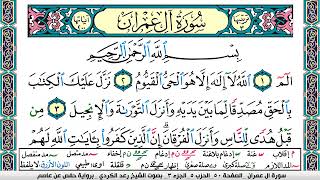 سُورَةُ آلِ عِمْرَانَ
بِسْمِ اللَّهِ الرَّحْمَٰنِ الرَّحِيمِ
الٓمٓ ١ اللَّهُ لَا إِلَٰهَ إِلَّا هُوَ الْحَيُّ الْقَيُّومُ ٢ نَزَّلَ عَلَيْكَ الْكِتَابَ
بِالْحَقِّ مُصَدِّقًا لِّمَا بَيْنَ يَدَيْهِ وَأَنزَلَ التَّوْرَاةَ وَالْإِنجِيلَ ٣ مِن
قَبْلُ هُدًى لِّلنَّاسِ وَأَنزَلَ الْفُرْقَانَ إِنَّ الَّذِينَ كَفَرُوا بِآيَاتِ اللَّهِ لَهُمْ
سورة آل عمران الصفحة ٥٠ الحزب ٥ الجزء ٣ بصوت الشيخ رعد الكردي برواية حفص عن عاصم